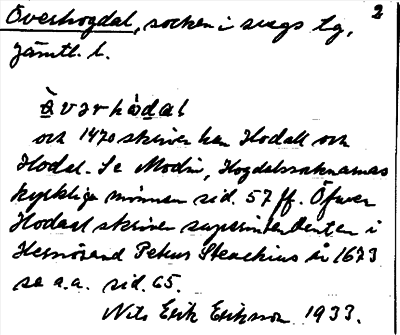 Överhogdal, socken i Svegs tg, 2
Jämtl. l.
Åvərhòdal
och 1470 skriver han Hodall och
Hodal. Se Modin, Hogdalssoknarnas
kyrkliga minnen sid. 57 ff. Öfver
Hodaal skriver superintendenten i
Hernösand Petrus Steuchius år 1673
se a.a. sid. 65.
Nils Erik Eriksson 1933.